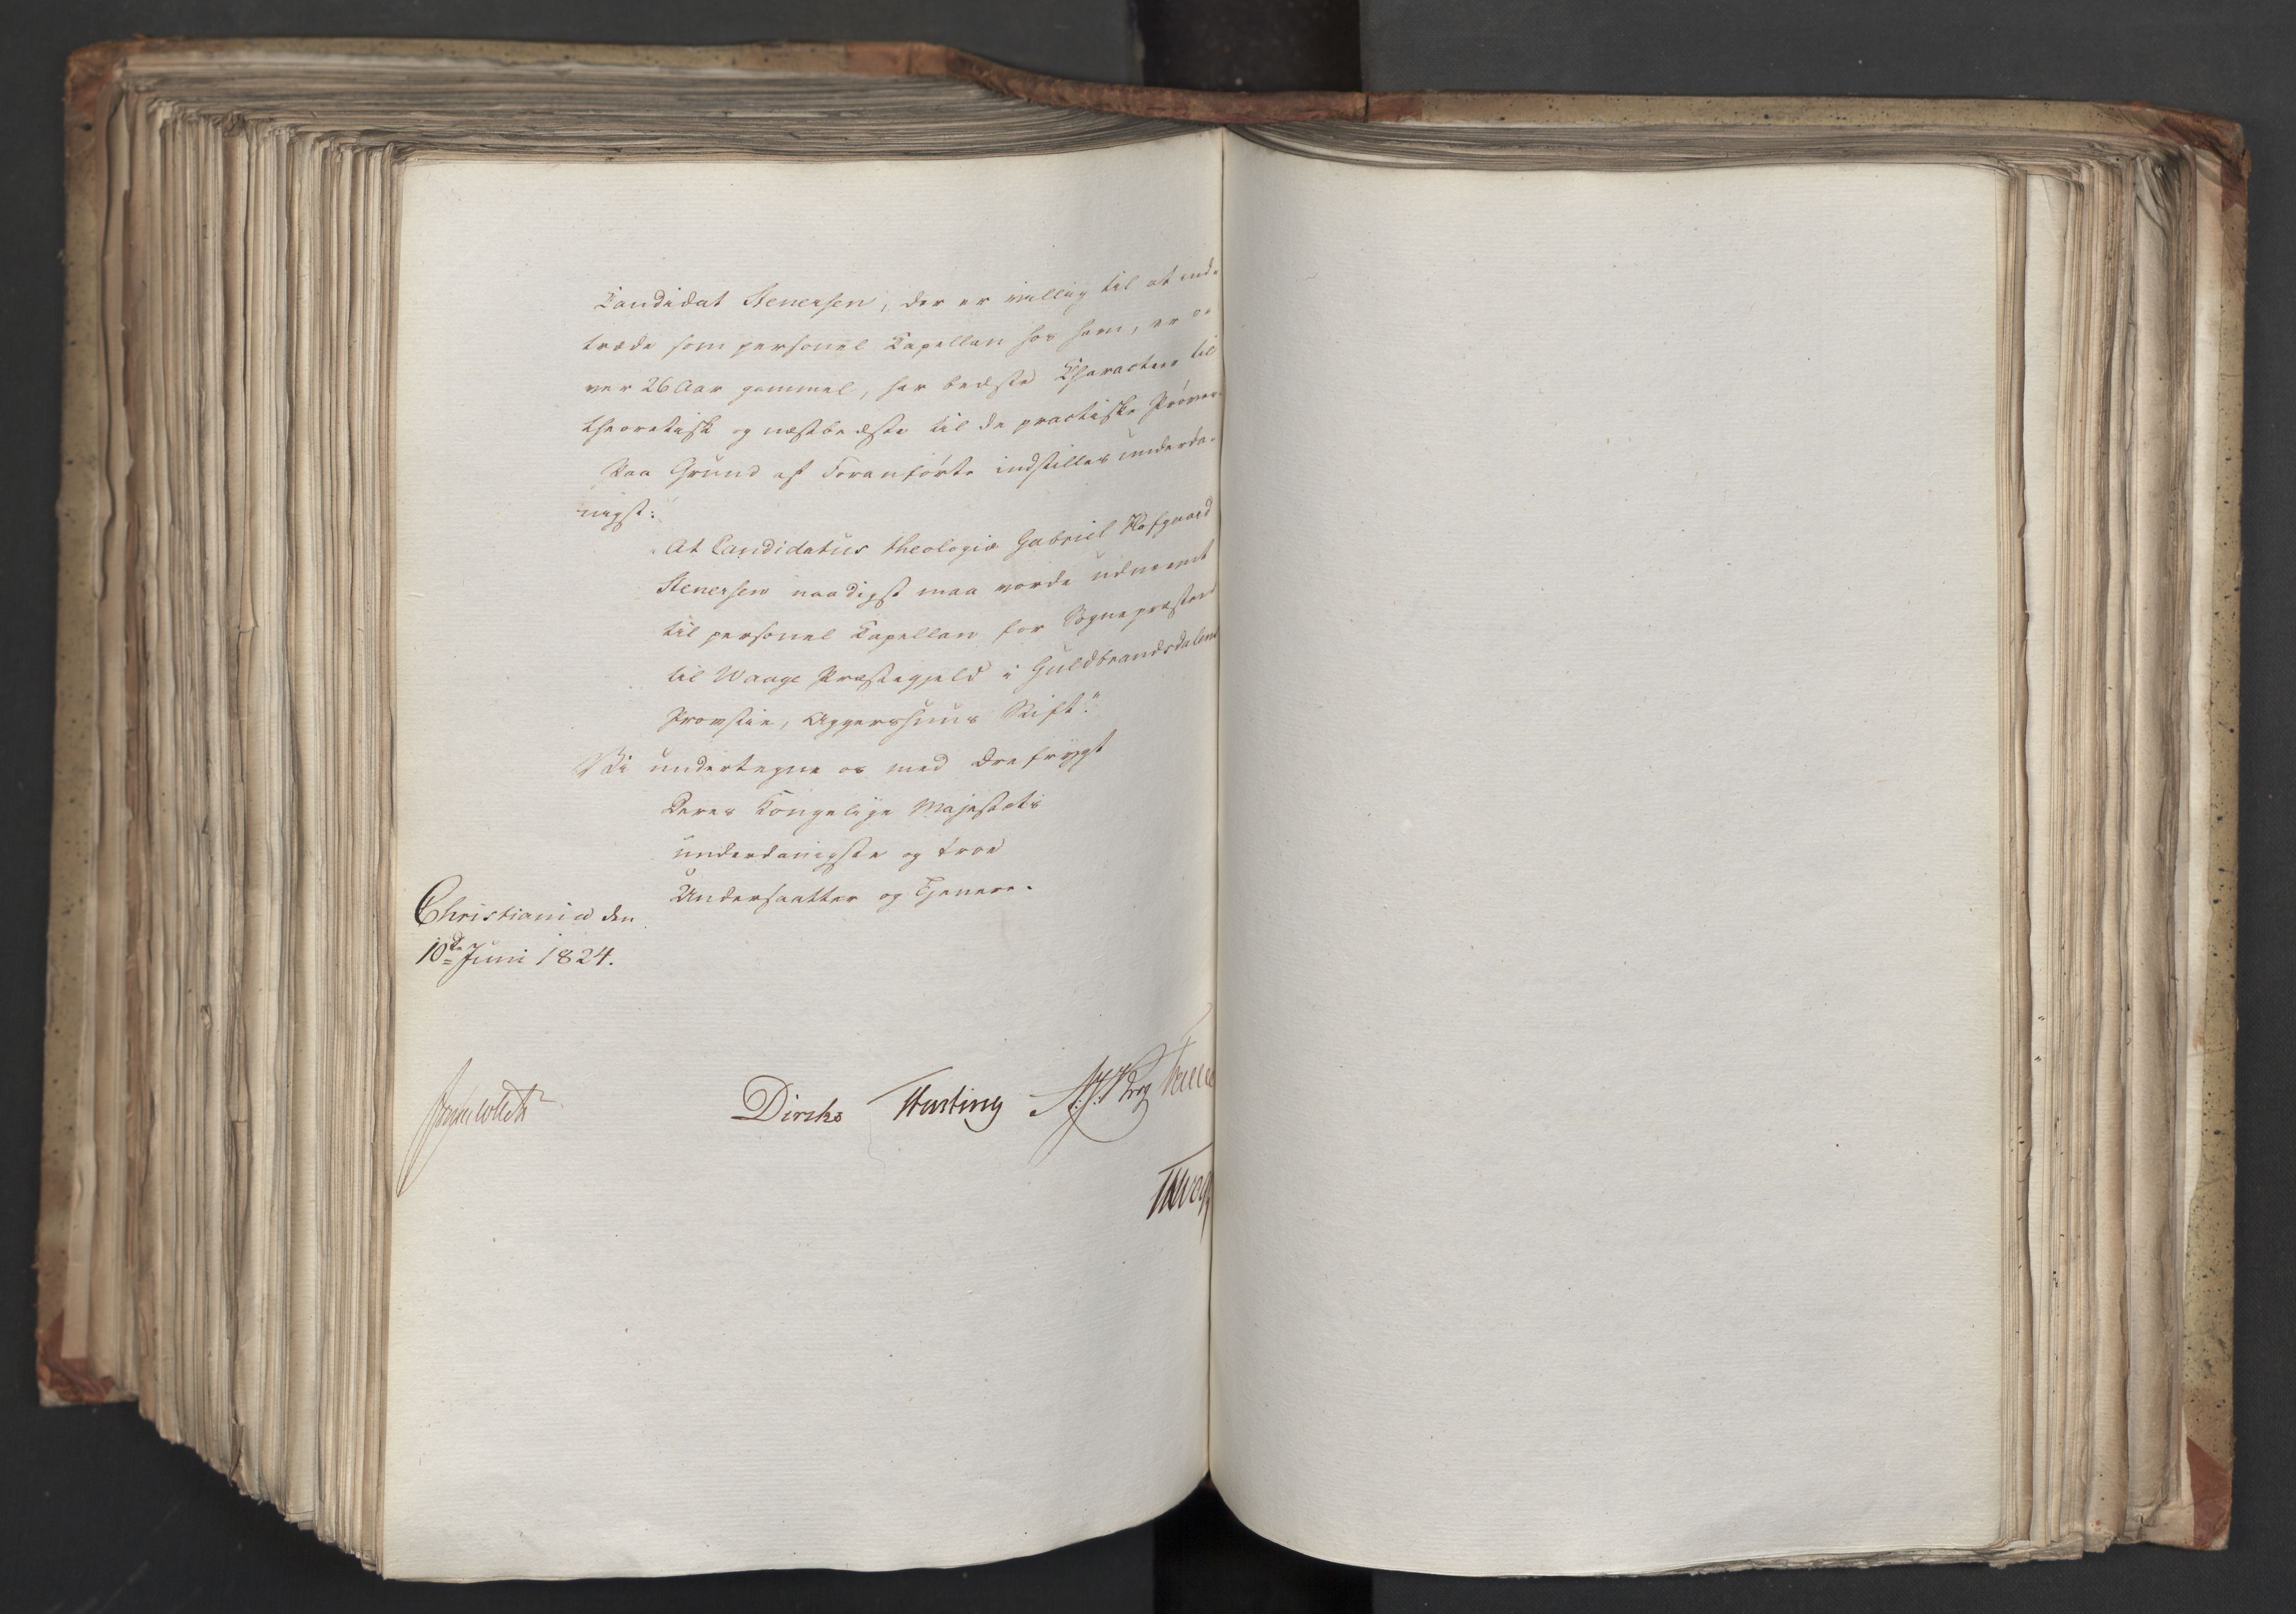 Candidat Stenersen, der er villig til at ind-
træde som personel Capellan hos ham, er o-
ver 26 Aar gammel, har bedste Character til
theoretisk og næstbedste til de practiske Prøver.
Paa Grund af Foranførte indstilles underda-
nigst:
"At Candidatus theologiæ Gabriel Kofgaard
Stenersen naadigst maa vorde udnævnt
til personel Capellan for Sognepræsten
til Waage Præstegjeld i Guldbrandsdalens
Provstie, Aggershuus Stift."
Vi undertegne os med Ærefrygt
Deres Kongelige Majestæts
underdanigste og troe
Undersaatter og Tjenere.
Christiania den
10de Juni 1824.
Jonas Collett
Diriks Holsting
Krog